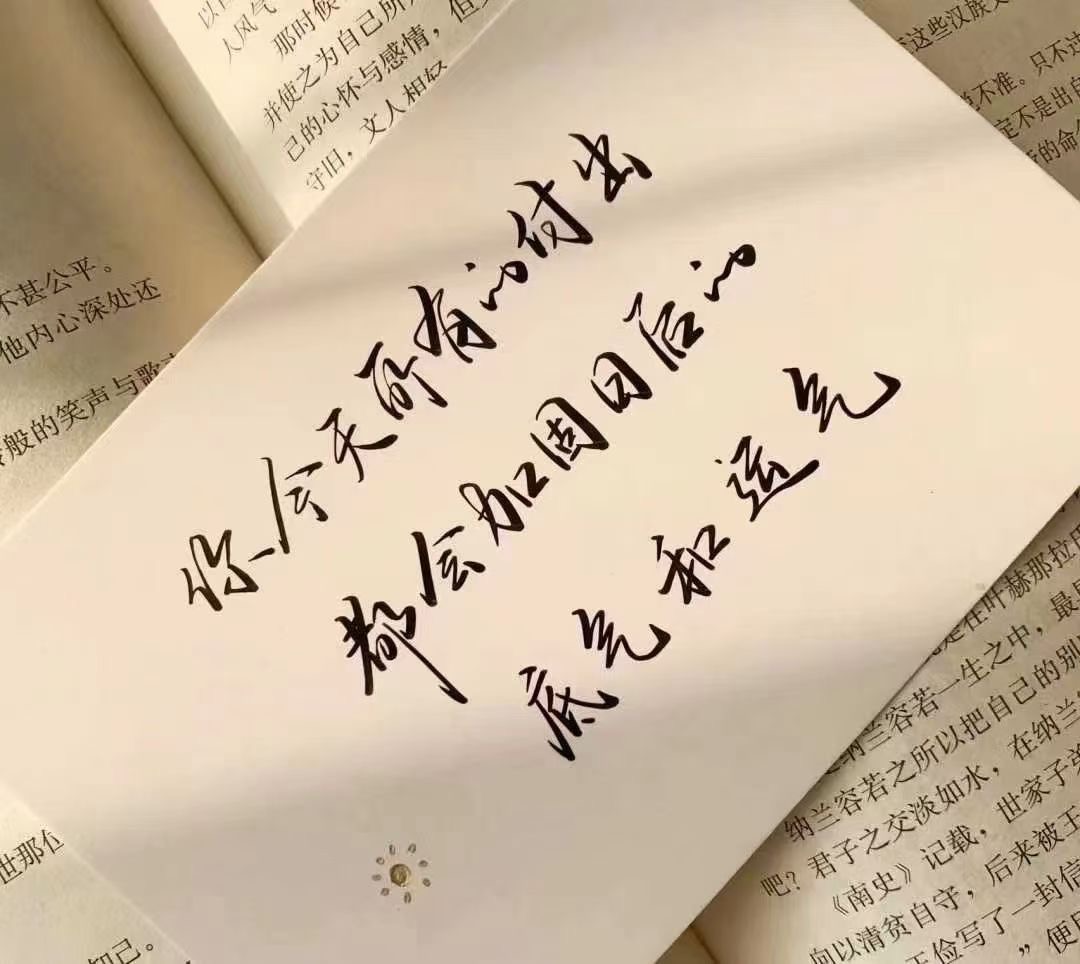 人风气
那时候
并使之为自己所
己的心怀与感情，但
守旧，文人相轻
这些汉族文
不准。只不过
定不是出自
的命
不甚公平。
他内心深处还
般的笑声与歌
你今天所有的付出
都会加固日后的
底气和运气
是在叶赫那拉
纳兰容若一生之中，最
纳兰容若之所以把自己的别
吧？君子之交淡如水，在纳兰
《南史》记载，世家子弟
向以清贫自守，后来被王
王俭写了一封信
”便
世那
知己。